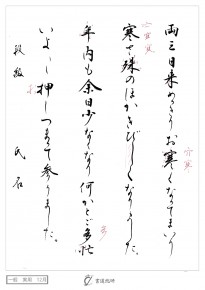 両三日来めっきりお寒くなってまいり
寒さ殊のほかきびしくなりました。
年内も余日少なくなり何かとご多忙
いよいよ押しつまって参りました。
段級 氏名
一般 実用 12月
書道教師